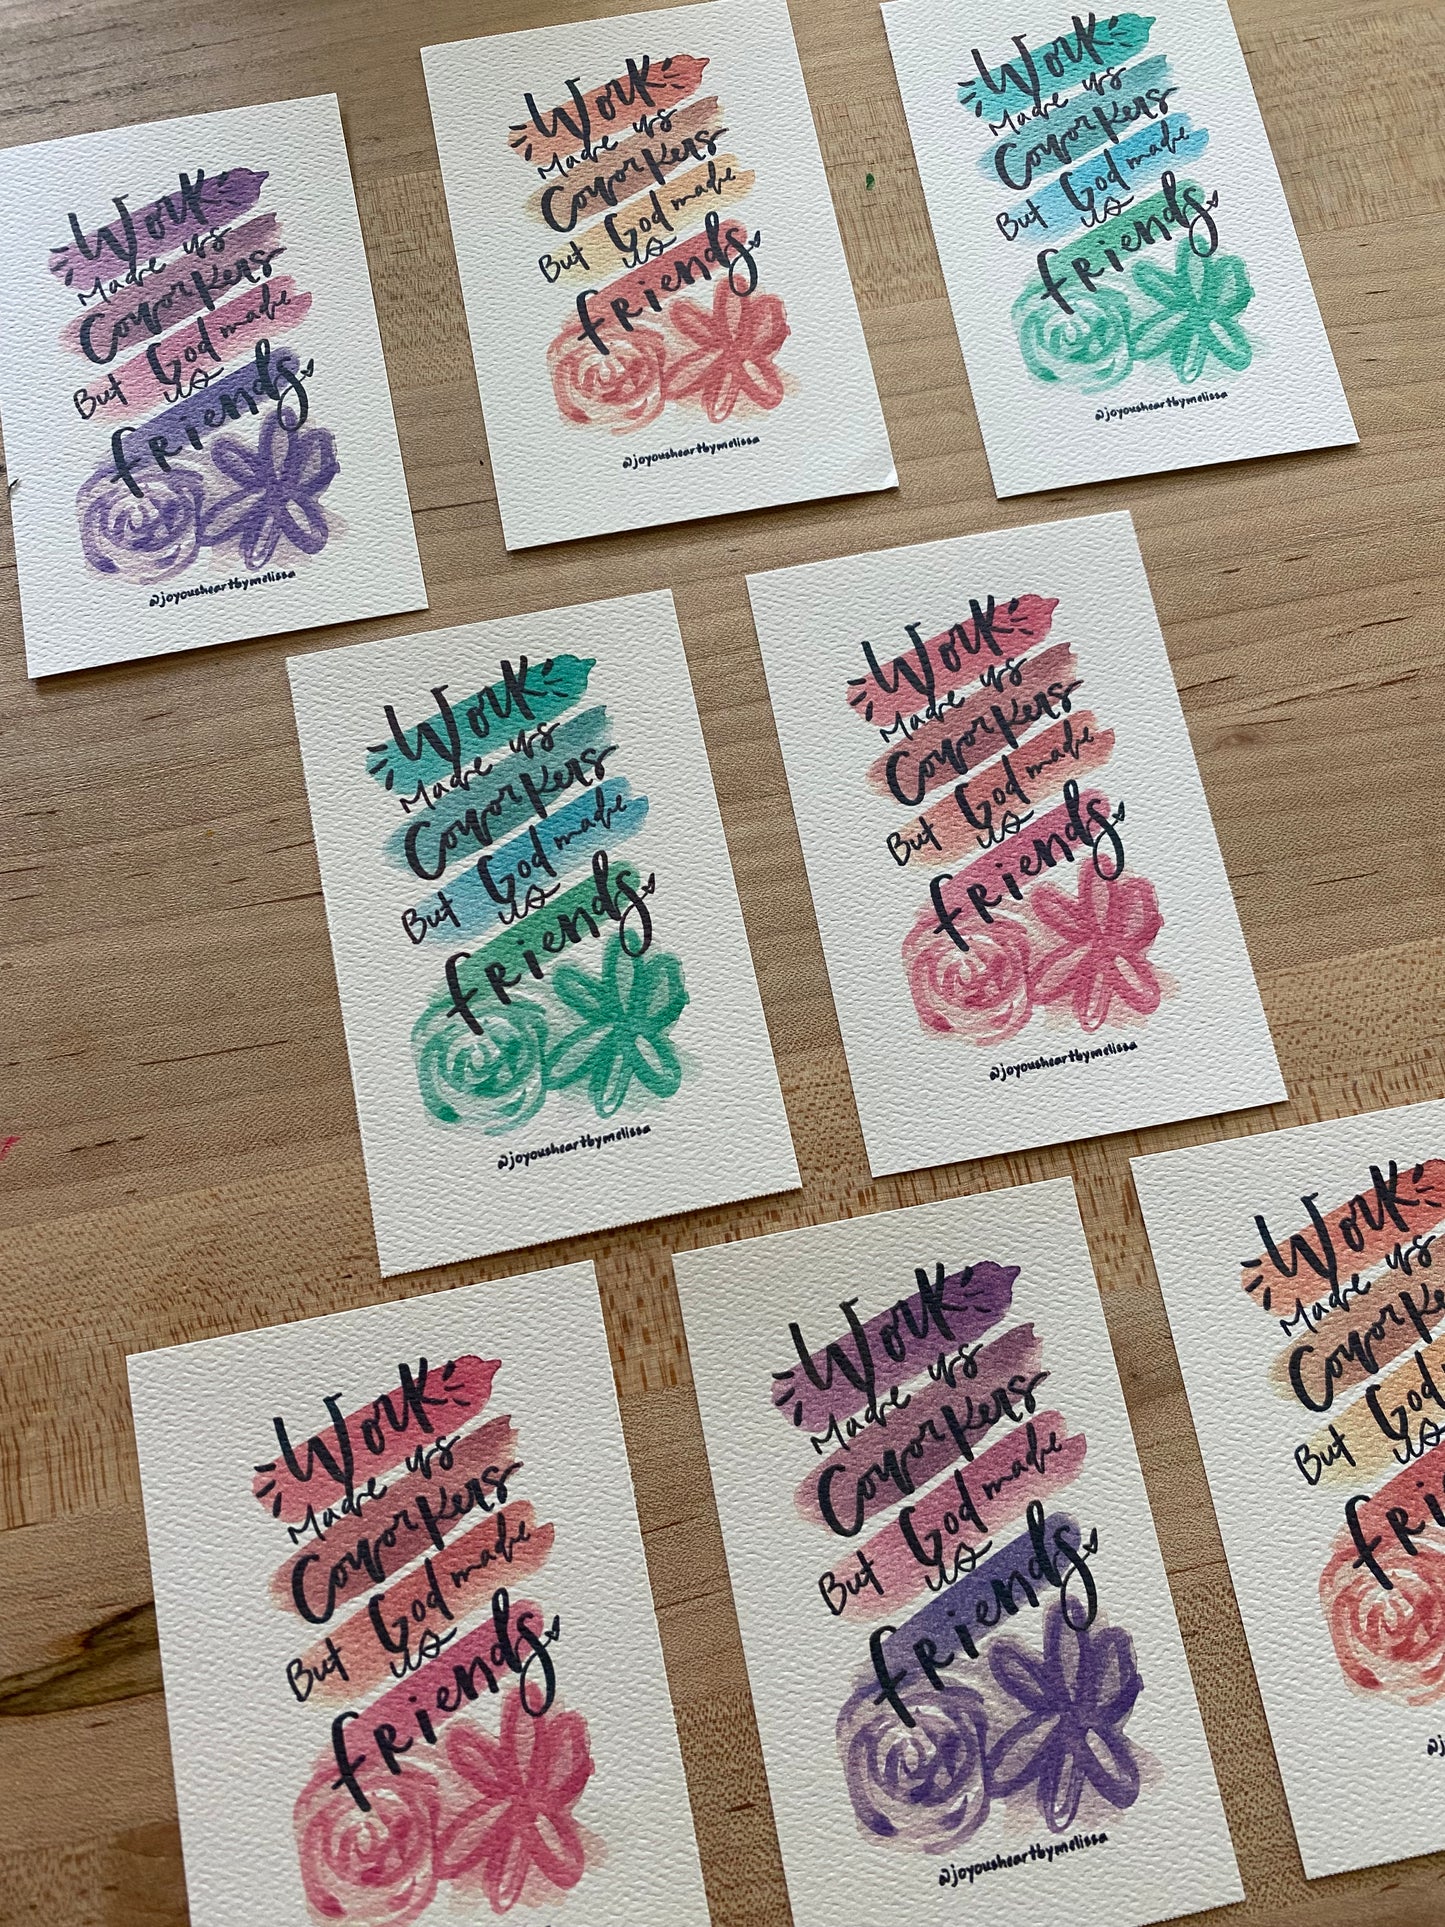 Work
Made us
Coworkers
But God made
us
friends
@joyousheartbymelissa
Work
Made us
Coworkers
But God made
us
friends
@joyousheartbymelissa
Work
Made us
Coworkers
But God made
us
friends
@joyousheartbymelissa
Work
Made us
Coworkers
But God made
us
friends
@joyousheartbymelissa
Work
Made us
Coworkers
But God made
us
friends
@joyousheartbymelissa
Work
Made us
Coworkers
But God made
us
friends
Work
Made us
Coworkers
But God made
us
friends
@joyousheartbymelissa
Work
Made us
But God
us